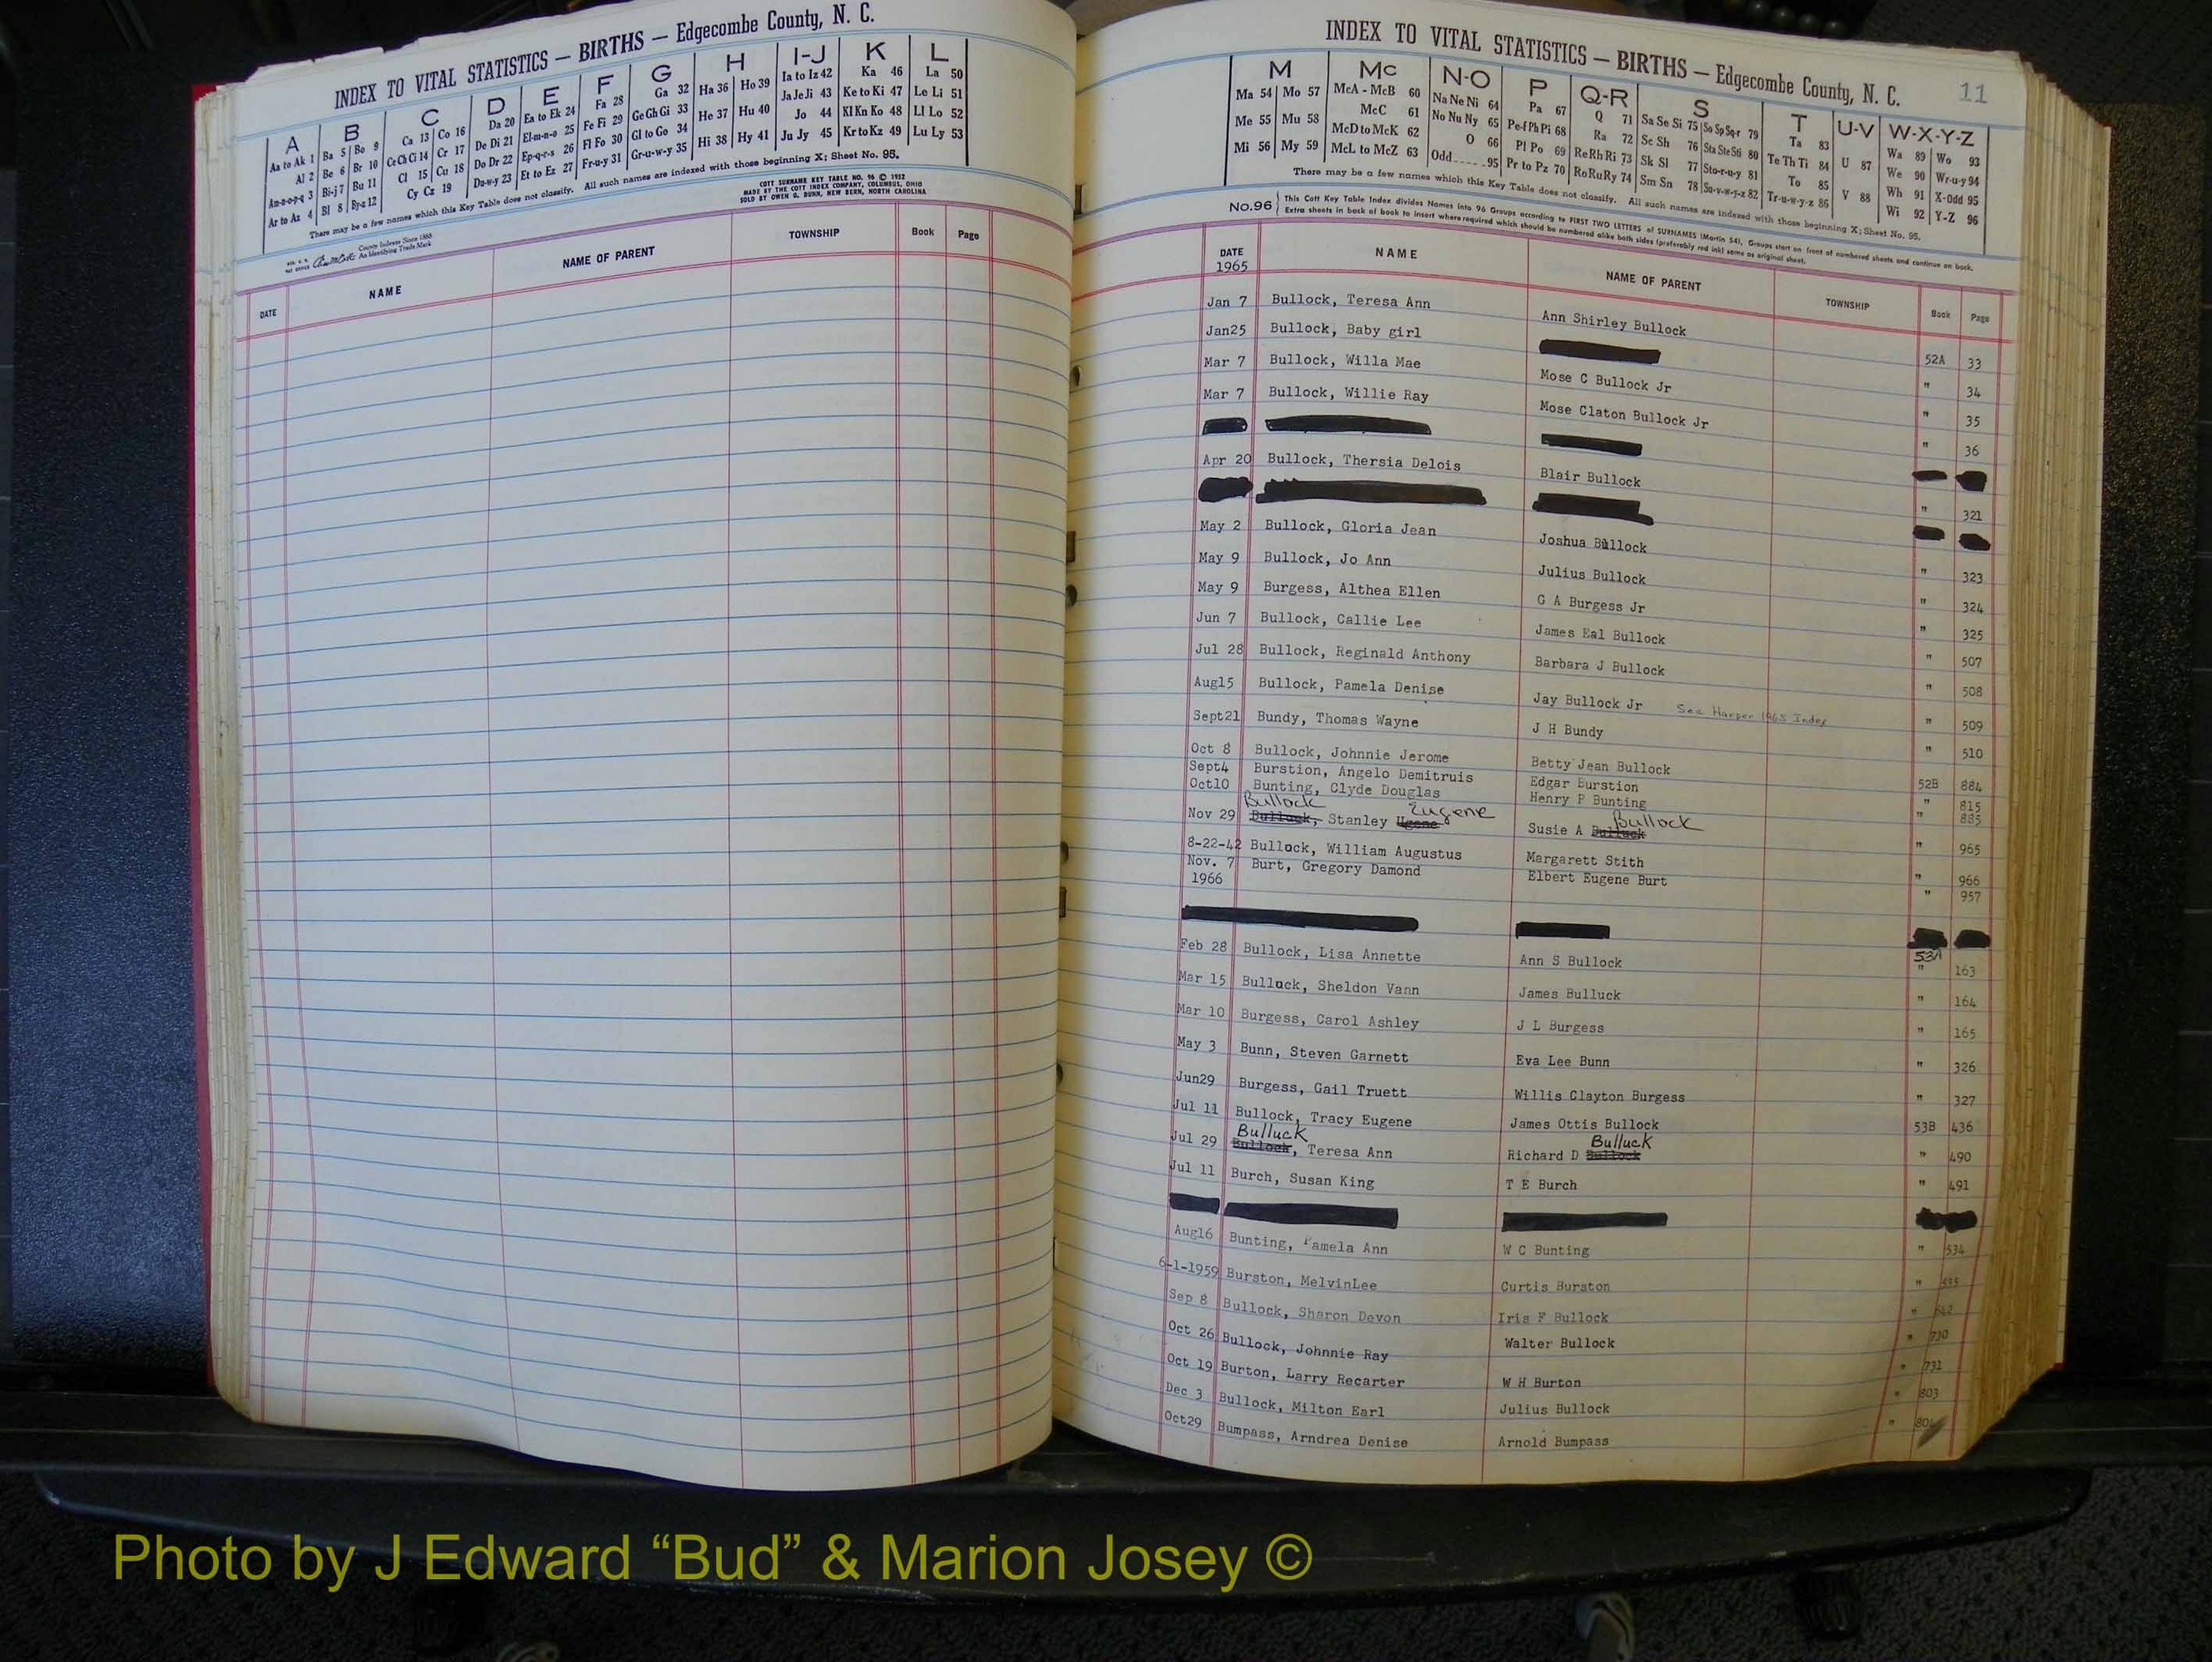 INDEX TO VITAL STATISTICS — BIRTHS — Edgecombe County, N. C.
A B C D E F G H I-J K L
Aa to Ak 1 Ba 5 Bo 9 Ca 13 Co 16 Da 20 Ea to Ek 24 Fa 28 Ga 32 Ha 36 Ho 39 Ia to Iz 42 Ka 46 La 50
Al 2 Be 6 Br 10 Ce Ch Ci 14 Cr 17 De Di 21 El-m-n-o 25 Fe Fi 29 Ge Gh Gi 33 He 37 Hu 40 Ja Je Ji 43 Ke to Ki 47 Le Li 51
Am-n-o-p-q 3 Bi-j 7 Bu 11 Cl 15 Cu 18 Do Dr 22 Ep-q-r-s 26 Fl Fo 30 Gl to Go 34 Hi 38 Hy 41 Jo 44 Kl Kn Ko 48 Ll Lo 52
Ar to Az 4 Bl 8 By-z 12 Cy Cz 19 Du-w-y 23 Et to Ez 27 Fr-u-y 31 Gr-u-w-y 35 Ju Jy 45 Kr to Kz 49 Lu Ly 53
There may be a few names which this Key Table does not classify. All such names are indexed with those beginning X; Sheet No. 95.
COTT SURNAME KEY TABLE NO. 96 © 1952
MADE BY THE COTT INDEX COMPANY, COLUMBUS, OHIO
SOLD BY OWEN G. DUNN, NEW BERN, NORTH CAROLINA
County Indexes Since 1888
An Identifying Trade Mark
DATE NAME NAME OF PARENT TOWNSHIP Book Page
INDEX TO VITAL STATISTICS — BIRTHS — Edgecombe County, N. C. 11
M Mc N-O P Q-R S T U-V W-X-Y-Z
Ma 54 Mo 57 McA - McB 60 Na Ne Ni 64 Pa 67 Q 71 Sa Se Si 75 So Sp Sq-r 79 Ta 83 U 87 Wa 89 Wo 93
Me 55 Mu 58 McC 61 No Nu Ny 65 Pe-f Ph Pi 68 Ra 72 Sc Sh 76 Sta Ste Sti 80 Te Th Ti 84 V 88 We 90 Wr-u-y 94
Mi 56 My 59 McD to McK 62 O 66 Pl Po 69 Re Rh Ri 73 Sk Sl 77 Sto-r-u-y 81 To 85 Wh 91 X-Odd 95
McL to McZ 63 Odd 95 Pr to Pz 70 Ro Ru Ry 74 Sm Sn 78 Su-v-w-y-z 82 Tr-u-w-y-z 86 Wi 92 Y-Z 96
There may be a few names which this Key Table does not classify. All such names are indexed with those beginning X; Sheet No. 95.
No. 96 This Cott Key Table Index divides Names into 96 Groups according to FIRST TWO LETTERS of SURNAMES (Martin 54), Groups start on front of numbered sheets and continue on back.
Extra sheets in back of book to insert where required which should be numbered alike both sides (preferably red ink) same as original sheet.
DATE NAME NAME OF PARENT TOWNSHIP Book Page
1965
Jan 7 Bullock, Teresa Ann Ann Shirley Bullock 52A 33
Jan25 Bullock, Baby girl " 34
Mar 7 Bullock, Willa Mae Mose C Bullock Jr " 35
Mar 7 Bullock, Willie Ray Mose Claton Bullock Jr " 36
Apr 20 Bullock, Thersia Delois Blair Bullock " 321
May 2 Bullock, Gloria Jean Joshua Bullock " 323
May 9 Bullock, Jo Ann Julius Bullock " 324
May 9 Burgess, Althea Ellen G A Burgess Jr " 325
Jun 7 Bullock, Callie Lee James Eal Bullock " 507
Jul 28 Bullock, Reginald Anthony Barbara J Bullock " 508
Aug15 Bullock, Pamela Denise Jay Bullock Jr See Harper 1965 Index " 509
Sept21 Bundy, Thomas Wayne J H Bundy " 510
Oct 8 Bullock, Johnnie Jerome Betty Jean Bullock 52B 884
Sept4 Burstion, Angelo Demitruis Edgar Burstion " 815
Oct10 Bunting, Clyde Douglas Henry P Bunting " 885
Bullock Eugene Bullock
Nov 29 Stanley Ugene Susie A " 965
8-22-42 Bullock, William Augustus Margarett Stith " 966
Nov. 7 Burt, Gregory Damond Elbert Eugene Burt " 957
1966
53A
Feb 28 Bullock, Lisa Annette Ann S Bullock " 163
Mar 15 Bulluck, Sheldon Vann James Bulluck " 164
Mar 10 Burgess, Carol Ashley J L Burgess " 165
May 3 Bunn, Steven Garnett Eva Lee Bunn " 326
Jun29 Burgess, Gail Truett Willis Clayton Burgess " 327
Jul 11 Bullock, Tracy Eugene James Ottis Bullock 53B 436
Bulluck Bulluck
Jul 29 Bullock, Teresa Ann Richard D Bullock " 490
Jul 11 Burch, Susan King T E Burch " 491
Aug16 Bunting, Pamela Ann W C Bunting " 534
6-1-1959 Burston, MelvinLee Curtis Burston " 535
Sep 8 Bullock, Sharon Devon Iris F Bullock " 642
Oct 26 Bullock, Johnnie Ray Walter Bullock " 730
Oct 19 Burton, Larry Recarter W H Burton " 731
Dec 3 Bullock, Milton Earl Julius Bullock " 803
Oct29 Bumpass, Arndrea Denise Arnold Bumpass "
Photo by J Edward “Bud” & Marion Josey ©